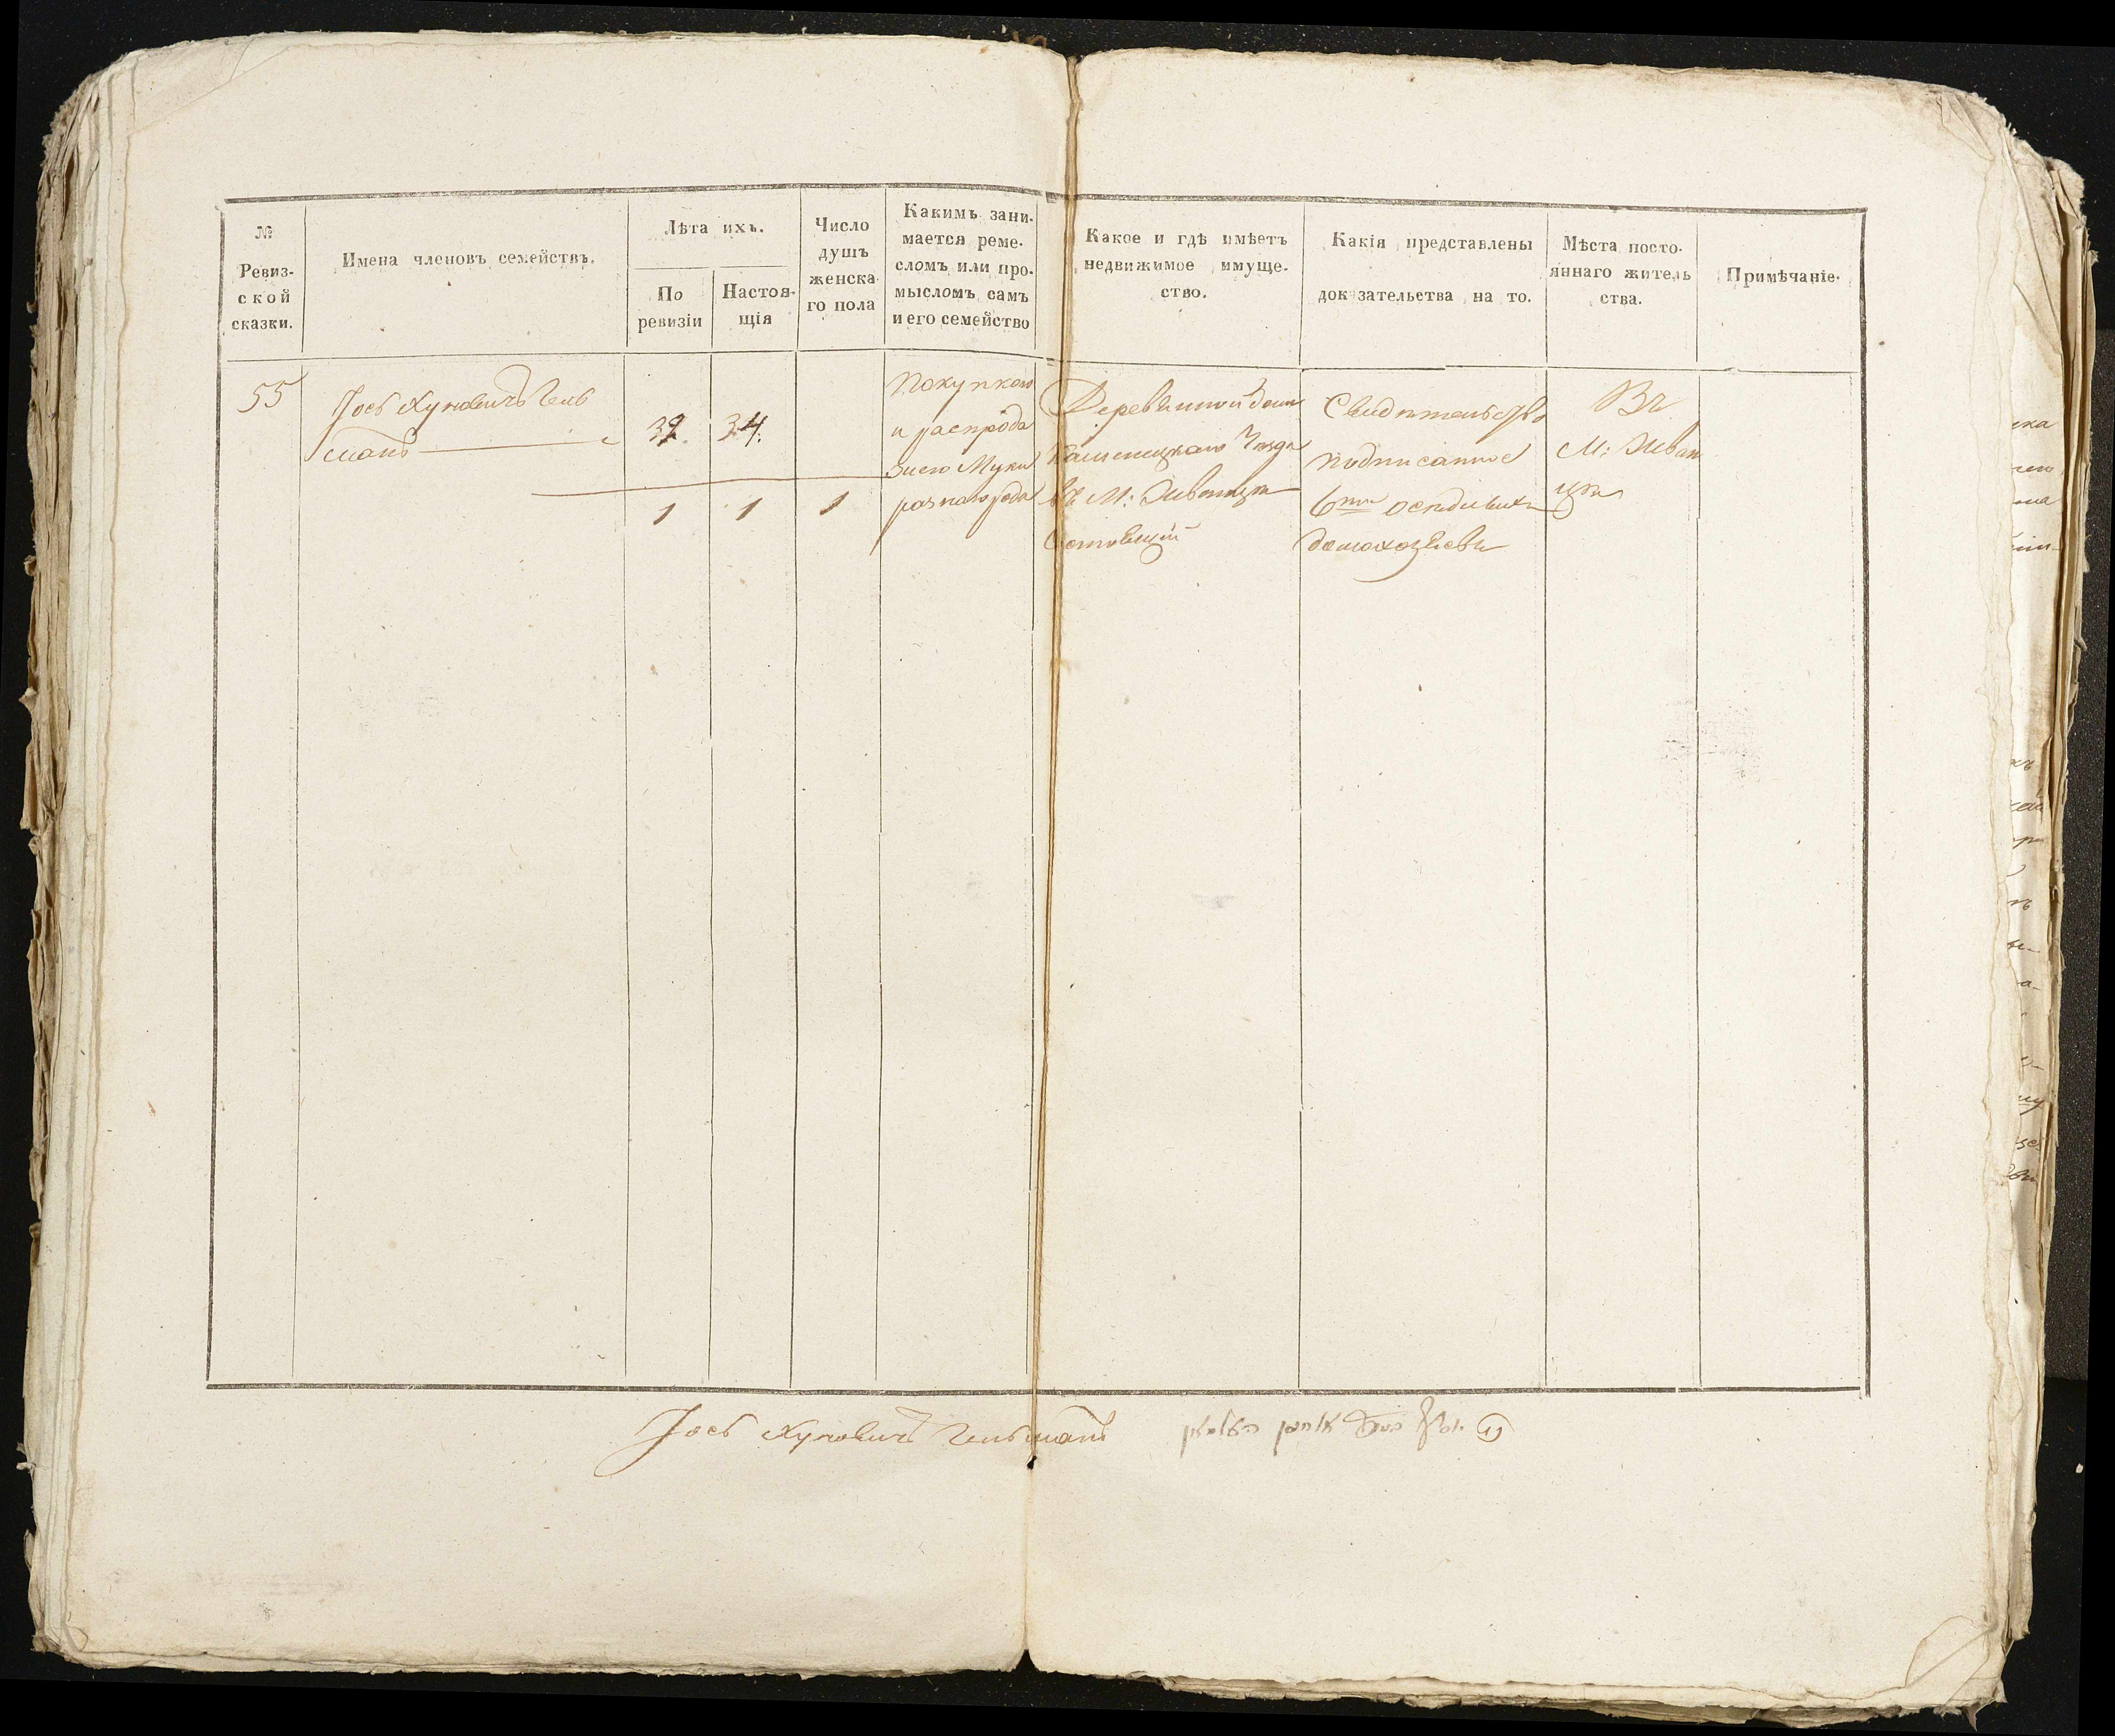 №
Ревиз-
ской
сказки.
Имена членовъ семействъ.
Лѣта ихъ.
По
ревизіи
Настоя-
щія
Число
душъ
женска-
го пола
Какимъ зани-
мается реме-
сломъ или про-
мысломъ самъ
и его семейство
Какое и гдѣ имѣетъ
недвижимое имуще-
ство.
Какія представлены
доказательства на то.
Мѣста посто-
яннаго житель
ства.
Примѣчаніе.
55
Іось Хуновичъ Гель
манъ
32. 34.
1 1 1
Покупкою
и распрода
жею Муки
разнаго рода
Деревянной домъ
Каменецкаго Уѣзда
въ М: Жванцѣ
состоящій
Свидѣтельство
подписанное
6ю осѣдлыхъ
домохозяевъ
Въ
М: Жван
цѣ
Іось Хуновичъ Гельманъ